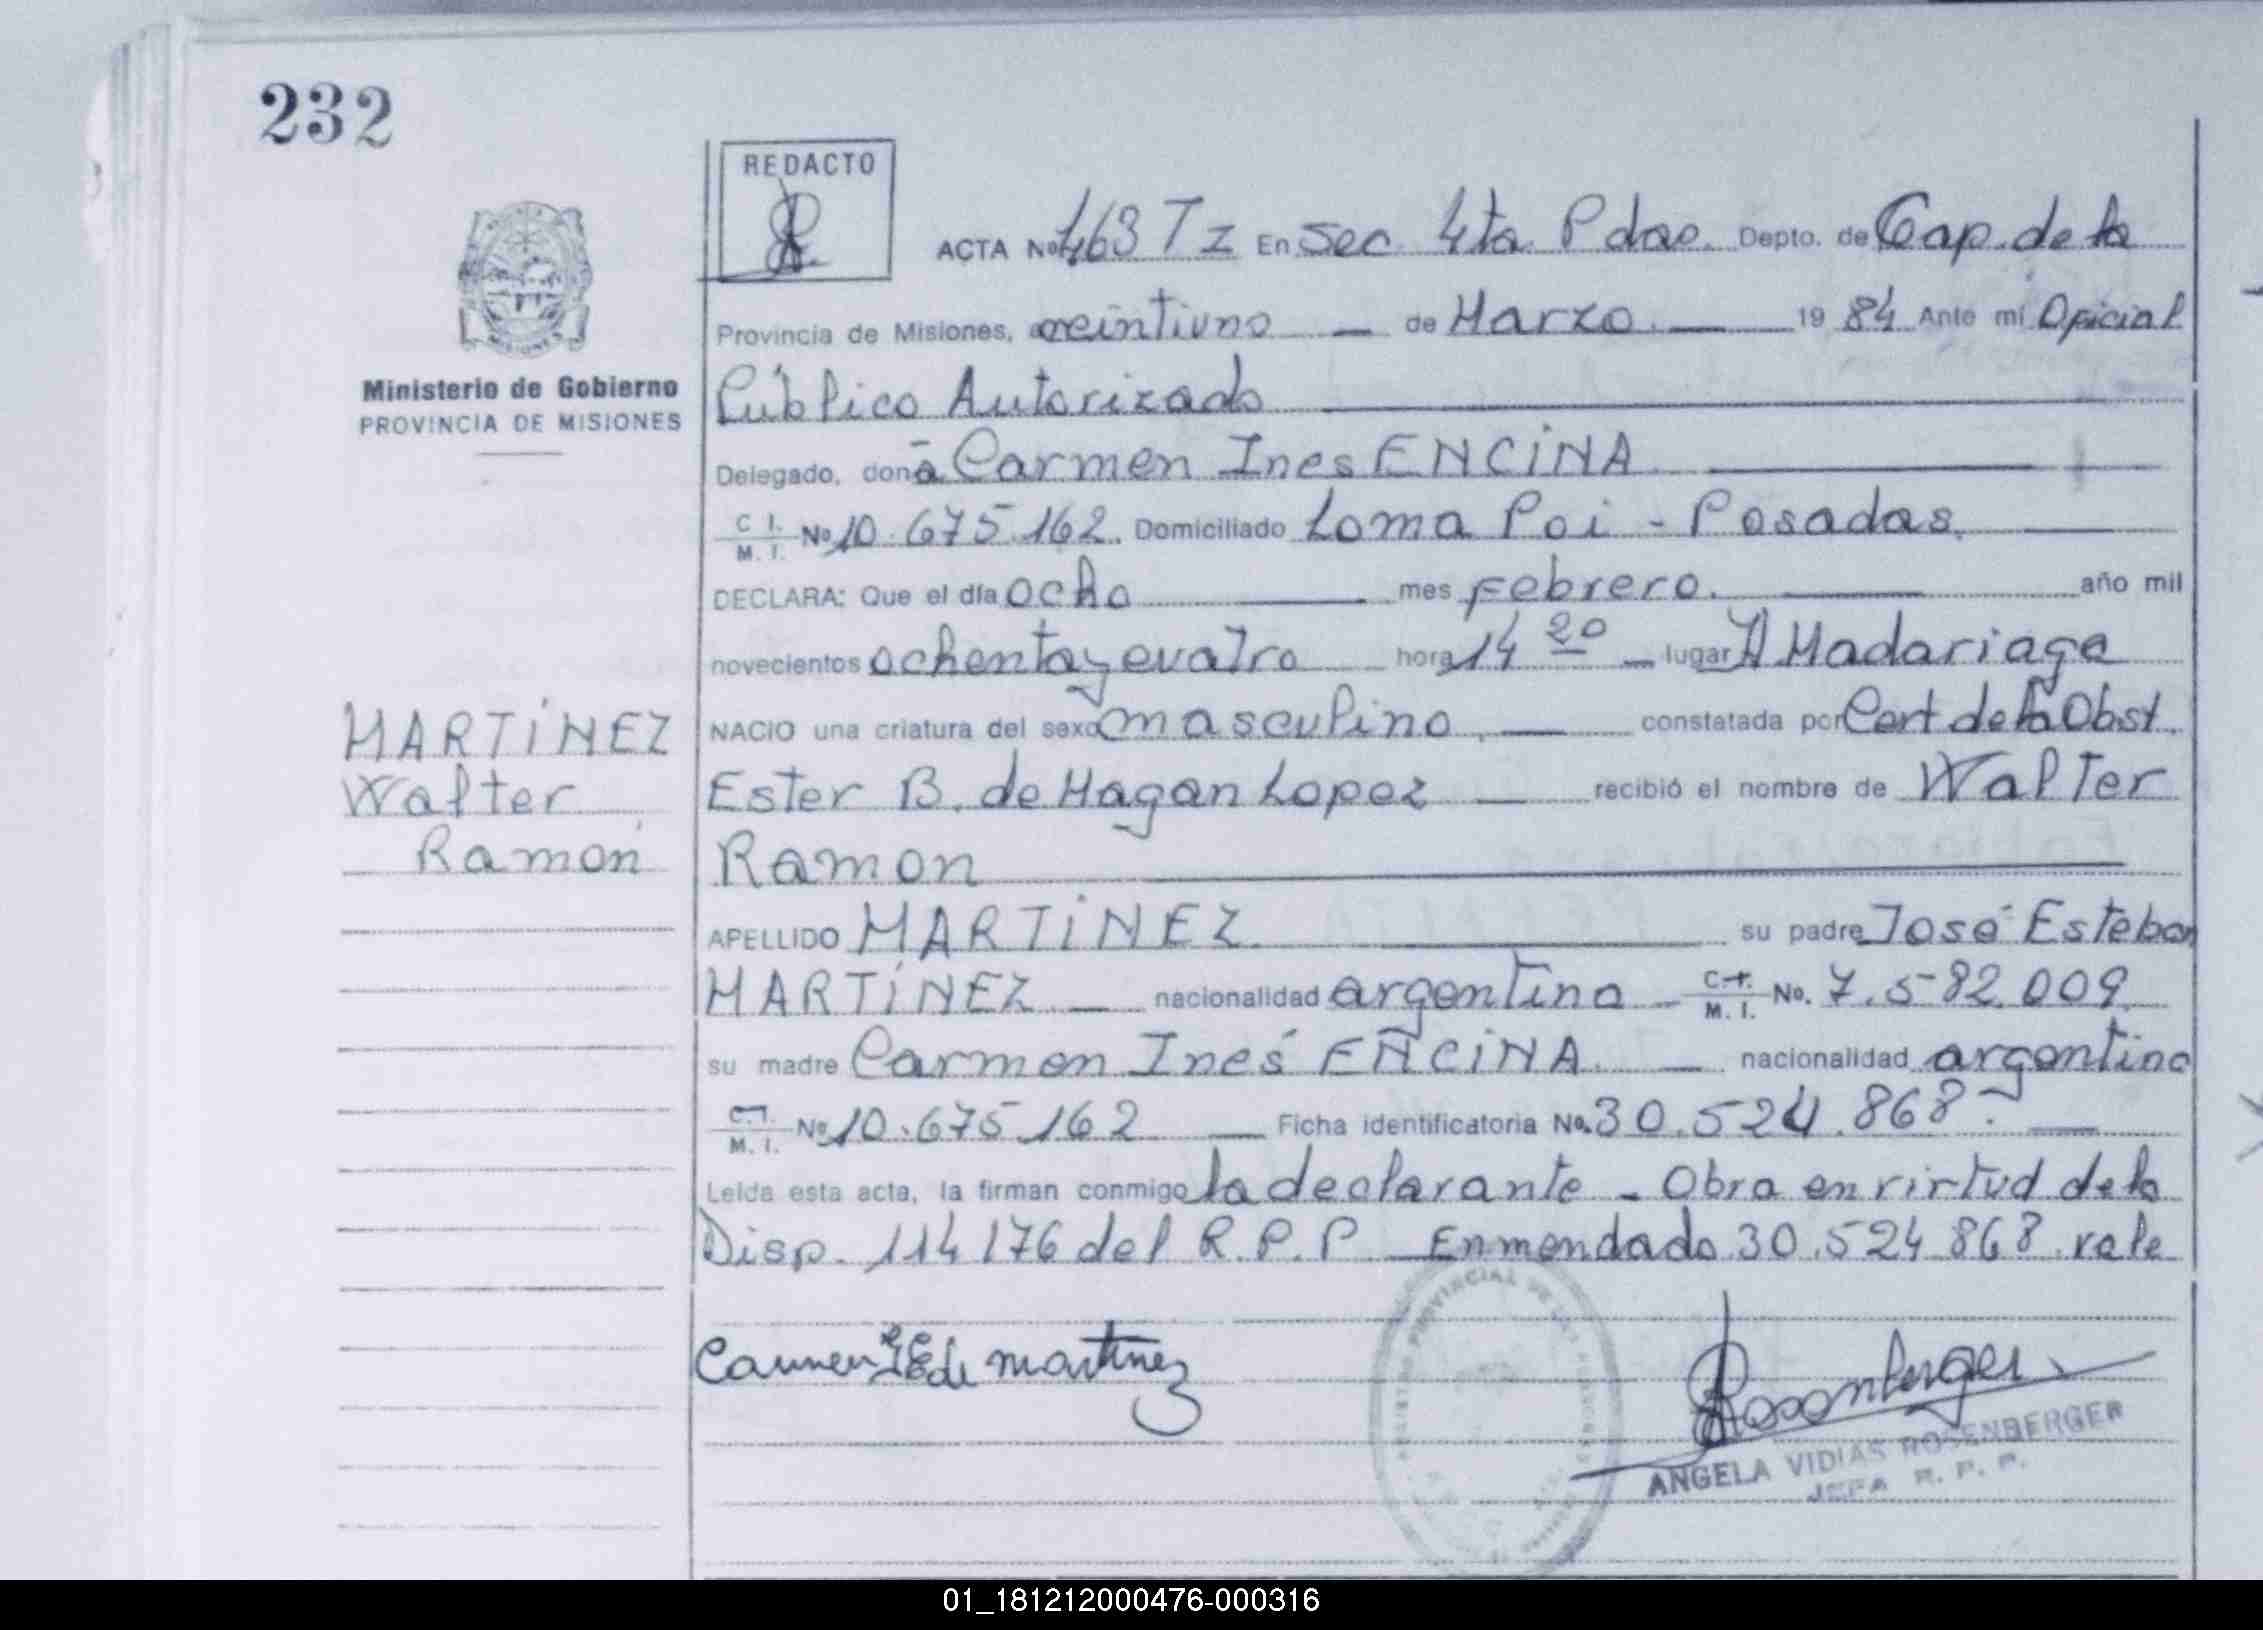 232
REDACTO
ACTA Nº 463 Tz En Sec. 4ta. Pdas. Depto. de Cap. de la
Provincia de Misiones, a veintiuno — de Marzo. — 19 84 Ante mí Oficial
Ministerio de Gobierno
PROVINCIA DE MISIONES
Público Autorizado
Delegado, doña Carmen Ines ENCINA
C. I.
M. I. Nº 10.675.162. Domiciliado Loma Poi - Posadas.
DECLARA: Que el día ocho — mes Febrero. — año mil
novecientos ochenta y cuatro hora 14 20 — lugar Madariaga
NACIO una criatura del sexo masculino, — constatada por Cert de la Obst.
Ester B. de Hagan Lopez — recibió el nombre de Walter
Ramon
MARTÍNEZ
Walter
Ramón
APELLIDO MARTÍNEZ. — su padre José Esteban
MARTÍNEZ — nacionalidad argentina — C. I.
M. I. No. 7.582.009.
su madre Carmen Inés ENCINA. — nacionalidad argentina
C. I.
M. I. Nº 10.675.162 — Ficha identificatoria No. 30.524.868. —
Leída esta acta, la firman conmigo la declarante - Obra en virtud de la
Disp. 114/76 del R.P.P Enmendado 30.524.868. vale
Carmen I E de Martinez
Rosenberger
ANGELA VIDIAS ROSENBERGER
JEFA R. P. P.
01_181212000476-000316